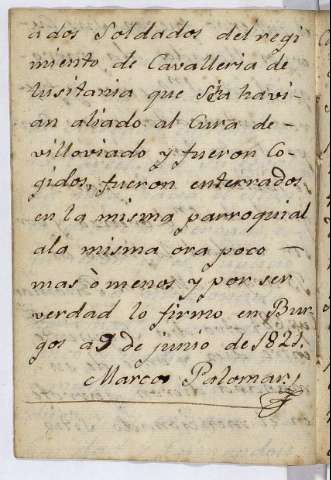 ados Soldados del regi
miento de Cavalleria de
Lusitania que se havi
an aliado al Cura de
villoviado y fueron Co-
gidos, fueron enterrados
en la misma parroquial
ala misma ora poco
mas ò menos y por ser
verdad lo firmo en Bur
gos a 9 de junio de 1821.
Marcos Palomar